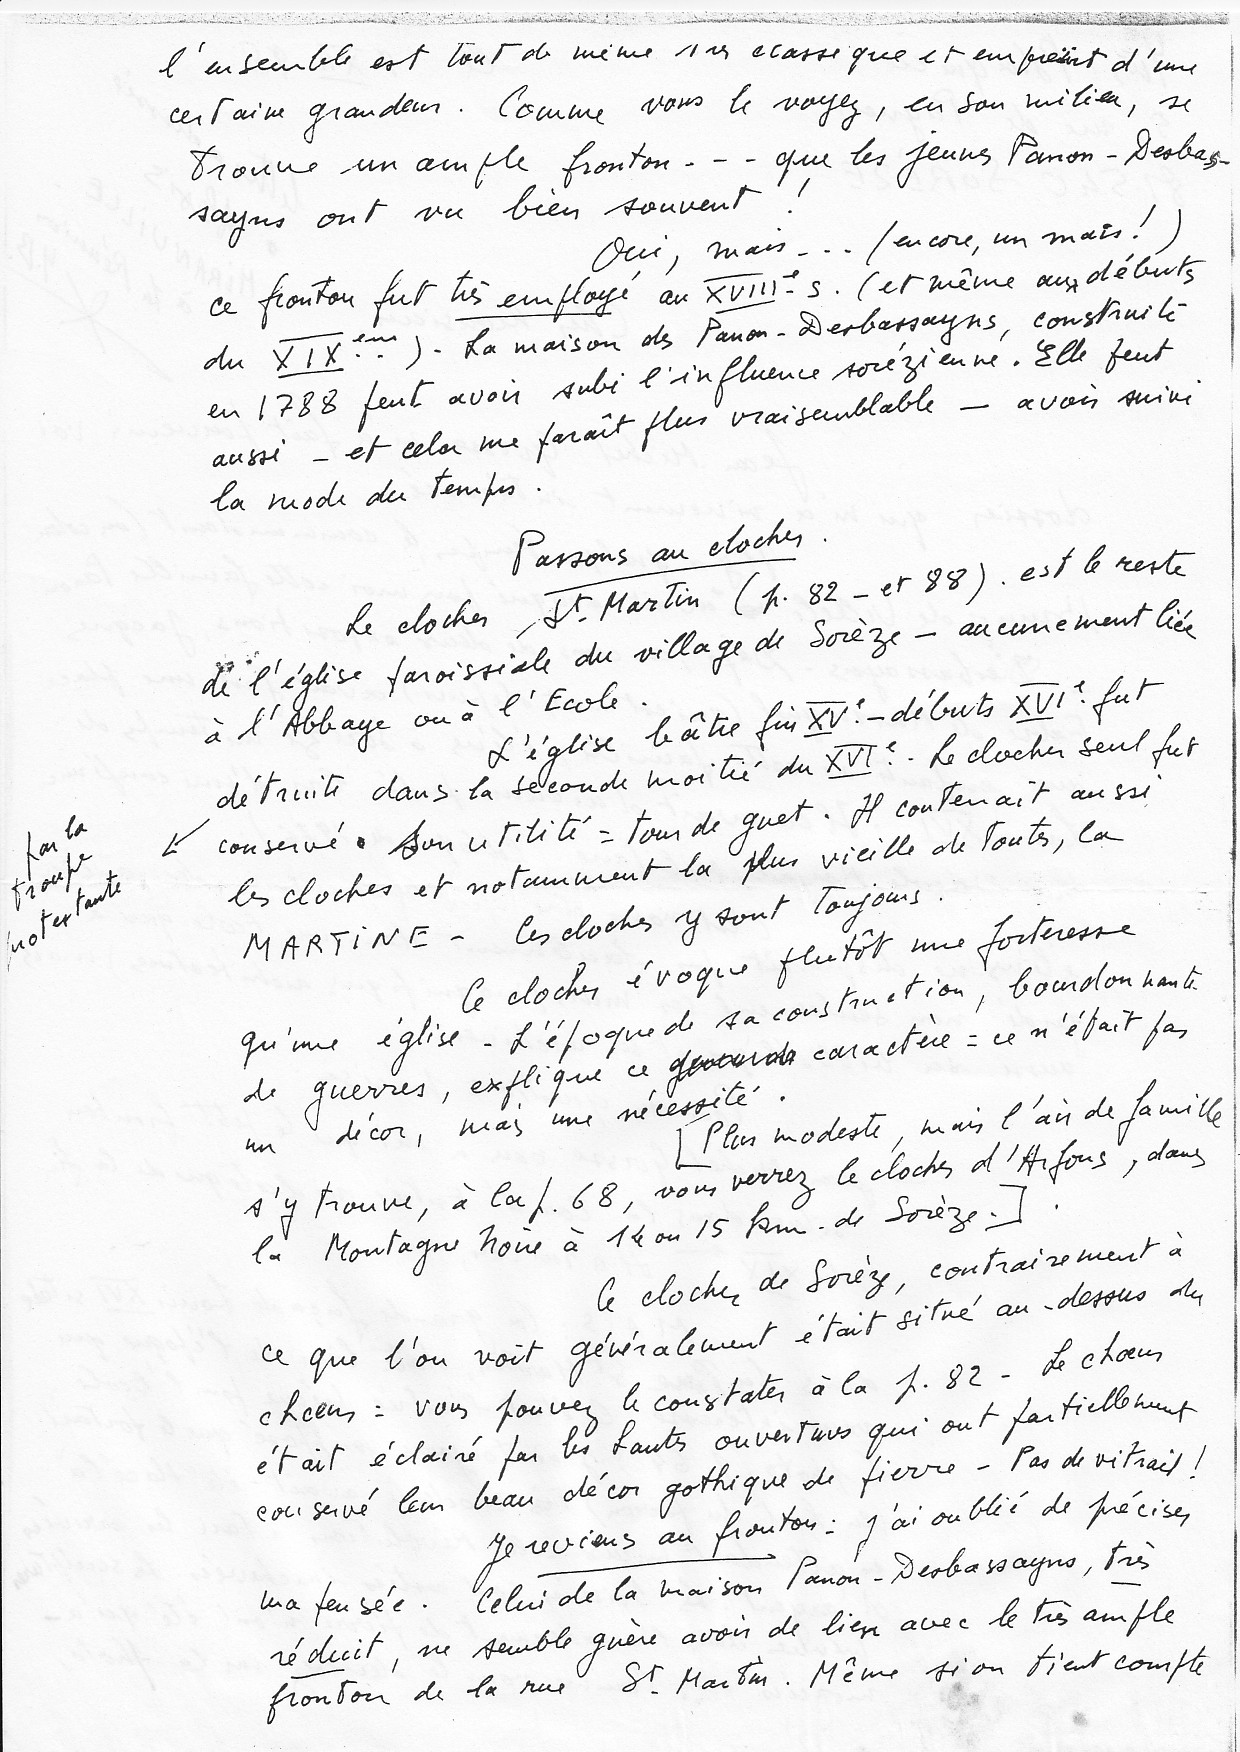 l'ensemble est tout de même très classique et empreint d'une
certaine grandeur. Comme vous le voyez, en son milieu, se
trouve un ample fronton - - - que les jeunes Panon-Desbas-
sayns ont vu bien souvent !
Oui, mais - - - (encore, un mais !)
ce fronton fut très employé au XVIIIe s. (et même aux débuts
du XIXème) - La maison des Panon-Desbassayns, construite
en 1788 peut avoir subi l'influence sorézienne. Elle peut
aussi - et cela me paraît plus vraisemblable - avoir suivi
la mode du temps.
Passons au clocher.
Le clocher, St. Martin (p. 82 - et 88). est le reste
de l'église paroissiale du village de Sorèze - aucunement liée
à l'Abbaye ou à l'Ecole.
L'église bâtie fin XVe - débuts XVIe fut
détruite dans la seconde moitié du XVIe - Le clocher seul fut
par la
troupe
protestante
conservé. Son utilité = tour de guet. Il contenait aussi
les cloches et notamment la plus vieille de toutes, la
MARTINE - Ces cloches y sont toujours.
Ce clocher évoque plutôt une forteresse
qu'une église - L'époque de sa construction, bourdonnante
de guerres, explique ce caractère = ce n'était pas
un décor, mais une nécessité.
[Plus modeste, mais l'air de famille
s'y trouve, à la p. 68, vous verrez le clocher d'Arfons, dans
la Montagne Noire à 14 ou 15 km. de Sorèze.].
Ce clocher de Sorèze, contrairement à
ce que l'on voit généralement était situé au-dessus du
chœur = vous pouvez le constater à la p. 82 - Le chœur
était éclairé par les hautes ouvertures qui ont partiellement
conservé leur beau décor gothique de pierre - Pas de vitrail !
Je reviens au fronton = j'ai oublié de préciser
ma pensée. Celui de la maison Panon-Desbassayns, très
réduit, ne semble guère avoir de lien avec le très ample
fronton de la rue St. Martin. Même si on tient compte